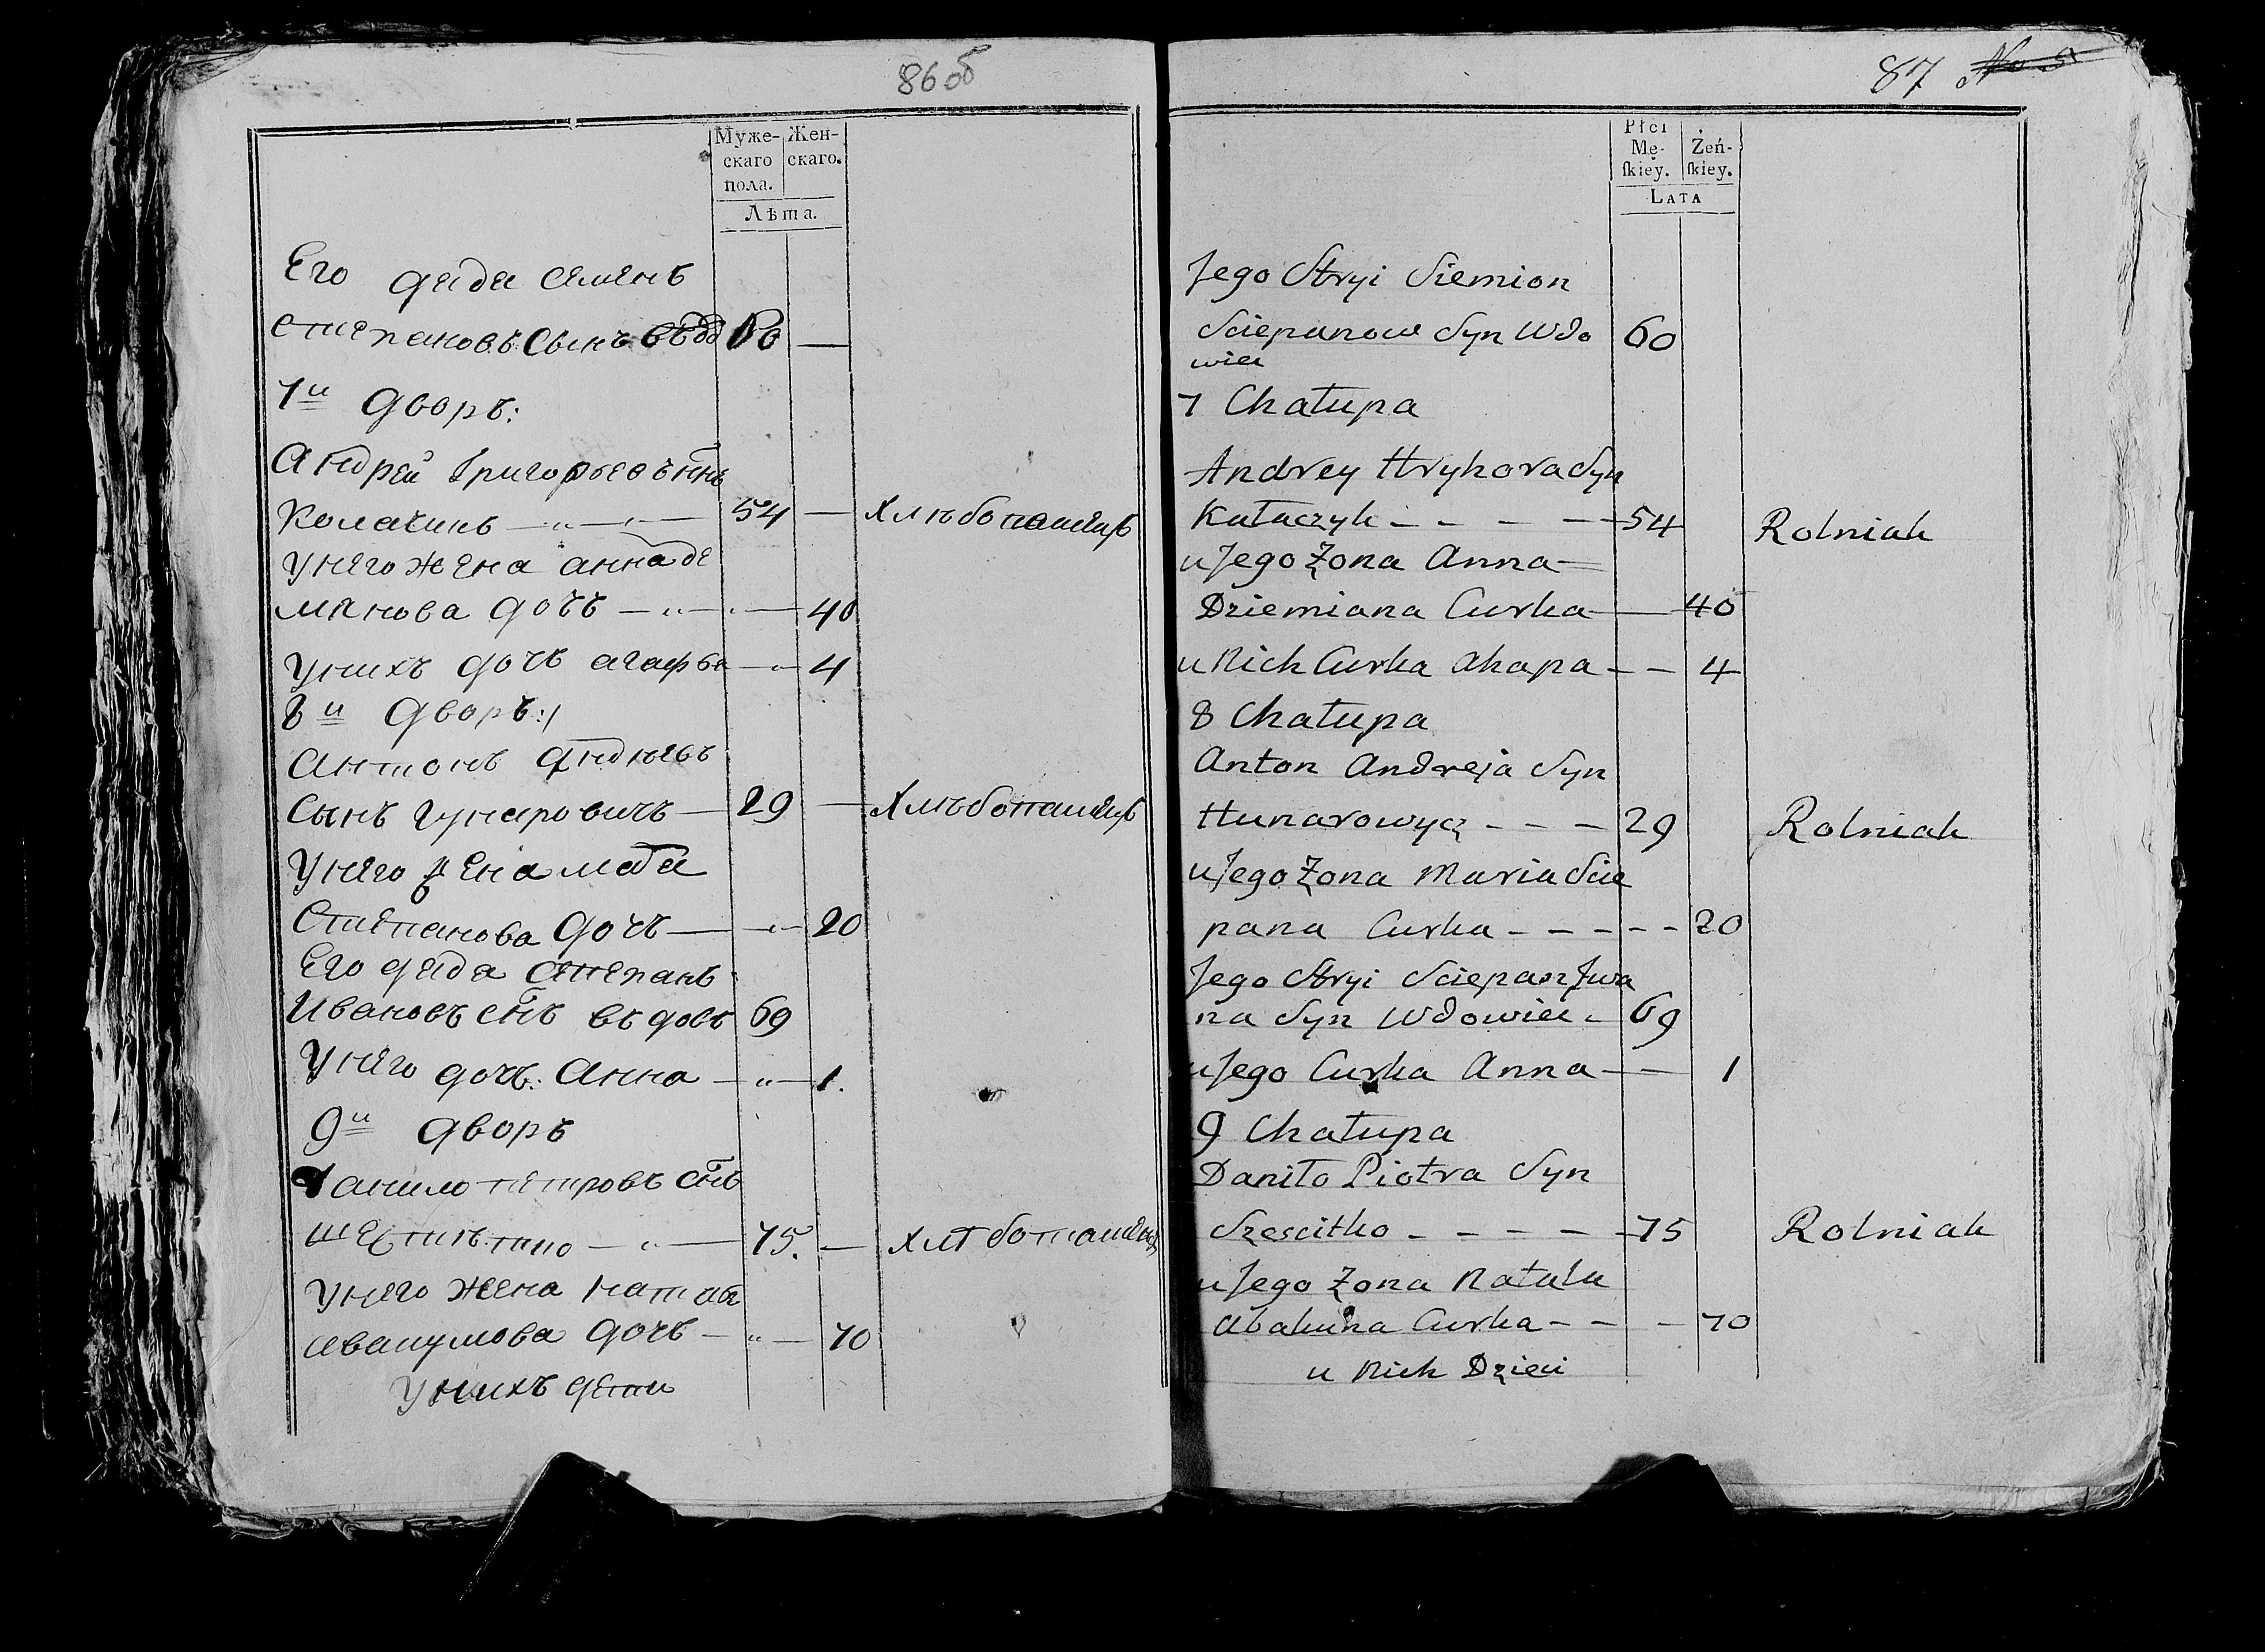 86 об
Муже-
скаго
пола.
Жен-
скаго.
Лѣта.
Его дядя Семенъ
Степановъ Сынъ вдо 60 —
7й дворъ:
Андрей Григорьевъ снъ
Колачикъ — 54 — Хлѣбопашецъ
У него жена анна де
мянова дочь — 40
У нихъ дочь агафья — 4
8й дворъ:
Антонъ Андреевъ
Сынъ гунаровичъ — 29 — Хлѣбопашецъ
У него жена
Степанова дочь — 20
Его дядя Степанъ
Ивановъ снъ вдовъ 69
У него дочь: Анна — „ — 1.
9й дворъ
Данило петровъ снъ
75. — Хлѣбопашецъ
У него жена Наталя
авакумова дочь — „ — 70
У нихъ дети
87 No 5
Płci
Mę-
ſkiey.
Żeń-
ſkiey.
LATA
Jego Stryi Siemion
Sciepanow Syn Wdo 60
wiec
7 Chałupa
Andrey Hryhora Syn
Kałaczyk - - - - - 54 Rolniak
u Jego Żona Anna —
Dziemiana Curka — 40
u Nich Curka Ahapa — — 4
8 Chałupa
Anton Andreja Syn
Hunarowycz - - - 29 Rolniak
u Jego Żona Maria Scie
pana Curka - - - - - 20
Jego Stryi Sciepan Jwa
na Syn Wdowiec - 69
u Jego Curka Anna — — 1
9 Chałupa
Daniło Piotra Syn
Szesciłko - - - - - 75 Rolniak
u Jego Żona Natala
Abakuma Curka - - - 70
u Nich Dzieci